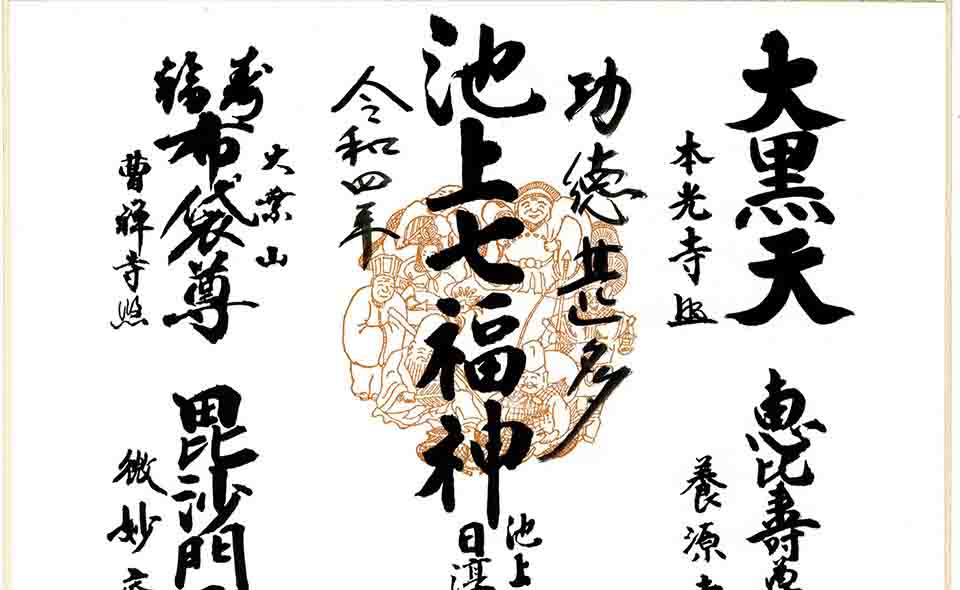 大黒天
本光寺
恵比寿尊
養源寺
功徳甚多
池上七福神
池上
日
令和四年
寿福
布袋尊
大業山
曹禅寺
毘沙門
微妙